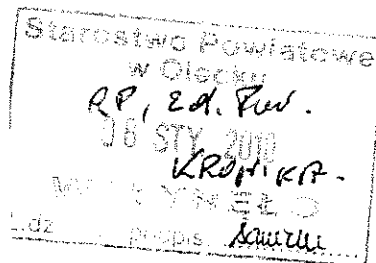 Starostwo Powiatowe
w Olecku
RP, Ed.
06 STY. 2010
KRONIKA.
WPŁYNĘŁO
L.dz podpis